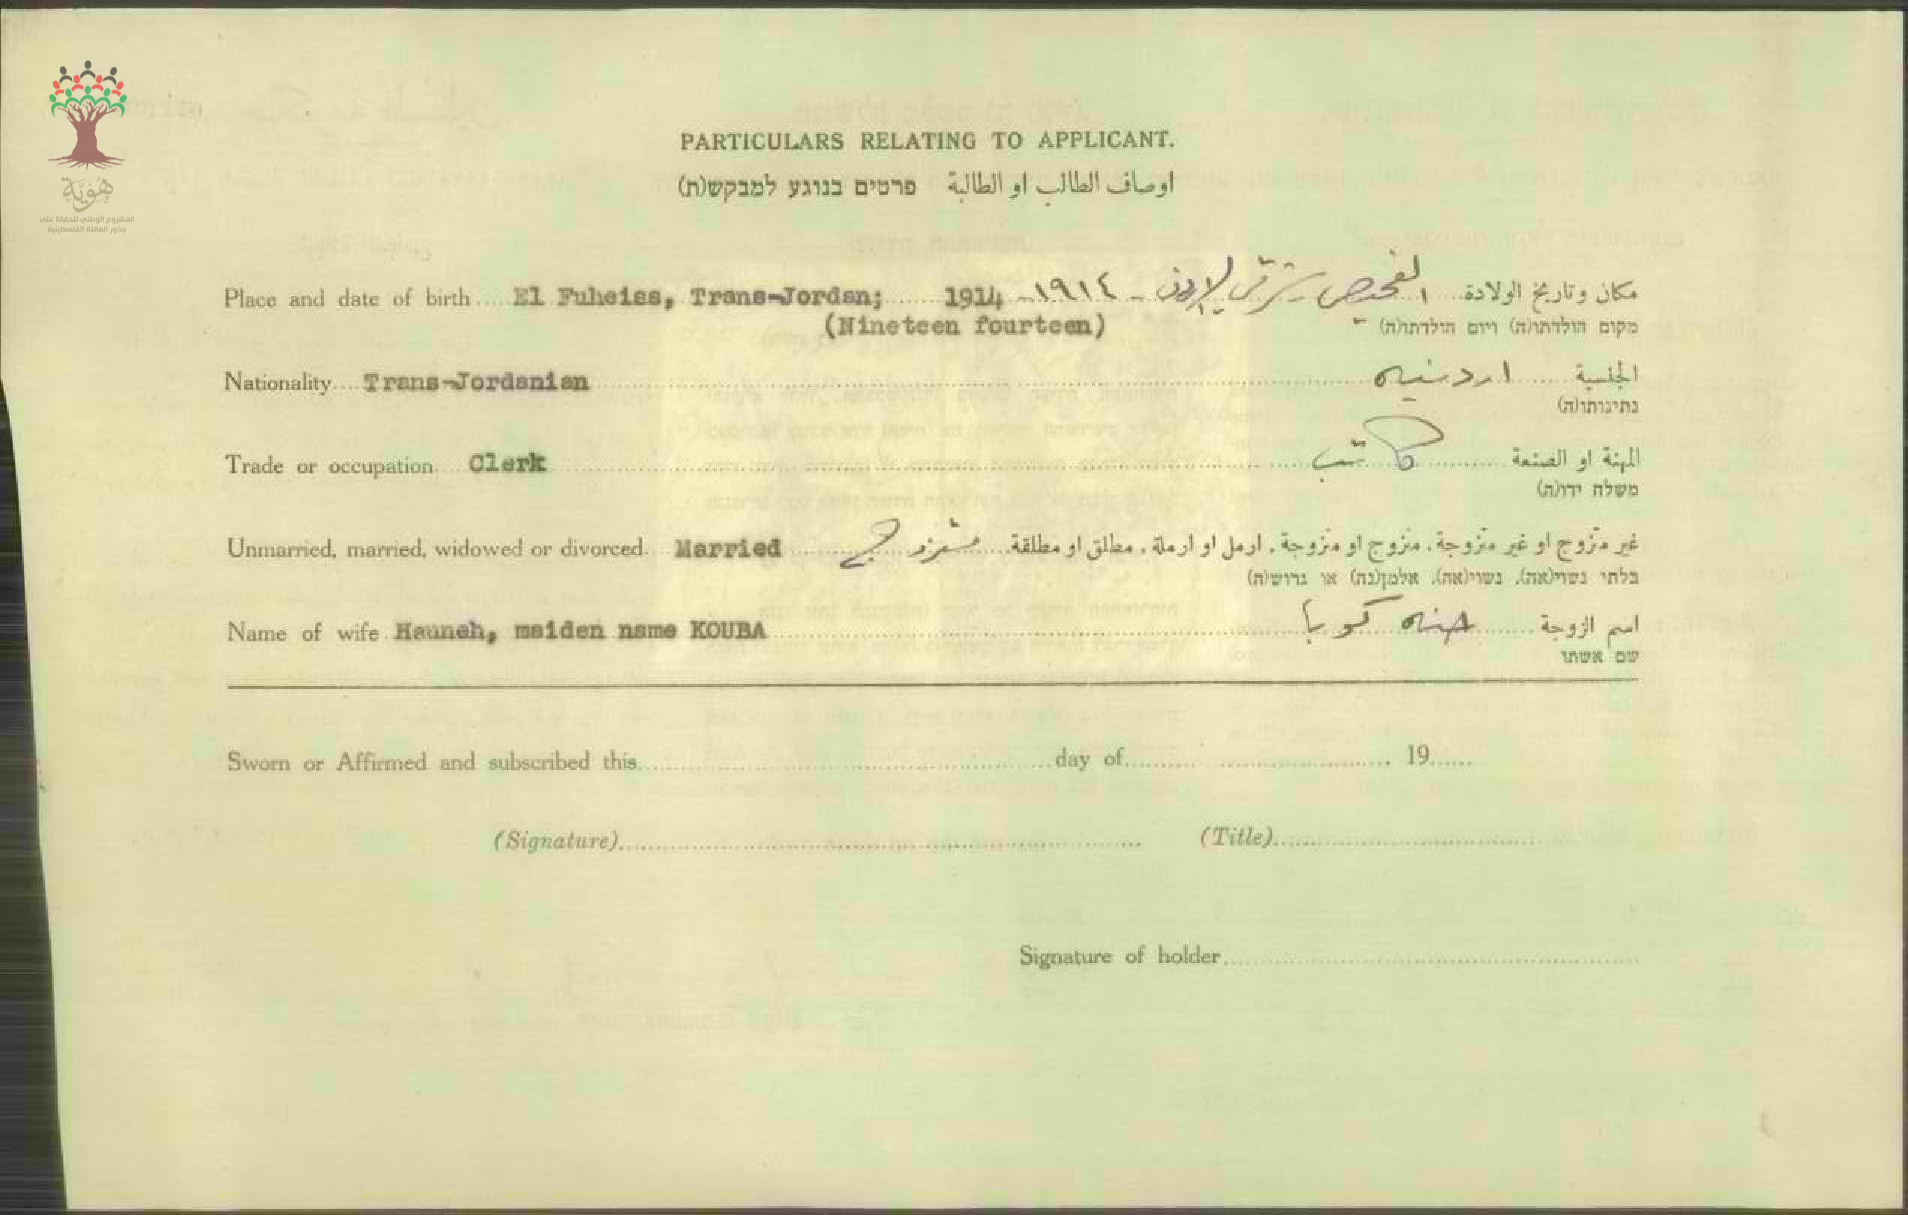 هُوِيَّة
المشروع الوطني للحفاظ على
جذور العائلة الفلسطينية
PARTICULARS RELATING TO APPLICANT.
اوصاف الطالب او الطالبة פרטים בנוגע למבקש(ת)
Place and date of birth El Fuheiss, Trans-Jordan; 1914 - ١٩١٤ - الفحيص شرقي الاردن مكان وتاريخ الولادة
(Nineteen fourteen) מקום הולדתו(ה) ויום הולדתו(ה)
Nationality Trans-Jordanian اردنيه الجنسية
נתינותו(ה)
Trade or occupation Clerk كاتب المهنة او الصنعة
משלח ידו(ה)
Unmarried, married, widowed or divorced. Married متزوج غير متزوج او غير متزوجة، متزوج او متزوجة، ارمل او ارملة، مطلق او مطلقة
בלתי נשוי(אה), נשוי(אה), אלמן(נה) או גרוש(ה)
Name of wife Hauneh, maiden name KOUBA حنه كوبا اسم الزوجة
שם אשתו
Sworn or Affirmed and subscribed this day of 19
(Signature) (Title)
Signature of holder